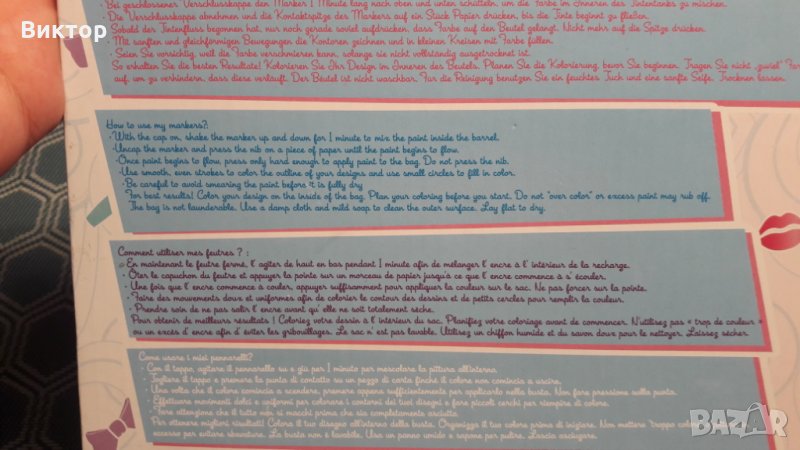 Виктор
· Bei geschlossener Verschlusskappe den Marker 1 Minute lang nach oben und unten schütteln, um die Farbe im Inneren des Tintentanks zu mischen.
· Die Verschlusskappe abnehmen und die Kontaktspitze des Markers auf ein Stück Papier drücken, bis die Tinte beginnt zu fließen.
· Sobald der Tintenfluss begonnen hat, nur noch gerade soviel aufdrücken, dass Farbe auf den Beutel gelangt. Nicht mehr auf die Spitze drücken.
· Mit sanften und gleichförmigen Bewegungen die Konturen zeichnen und in kleinen Kreisen mit Farbe füllen.
· Seien Sie vorsichtig, weil die Farbe verschmieren kann, solange sie nicht vollständig ausgetrocknet ist.
So erhalten Sie die besten Resultate! Kolorieren Sie Ihr Design im Inneren des Beutels. Planen Sie die Kolorierung, bevor Sie beginnen. Tragen Sie nicht „zuviel“ Far
auf, um zu verhindern, dass diese verläuft. Der Beutel ist nicht waschbar. Für die Reinigung benutzen Sie ein feuchtes Tuch und eine sanfte Seife. Trocknen lassen.
How to use my markers?:
· With the cap on, shake the marker up and down for 1 minute to mix the paint inside the barrel.
· Uncap the marker and press the nib on a piece of paper until the paint begins to flow.
· Once paint begins to flow, press only hard enough to apply paint to the bag. Do not press the nib.
· Use smooth, even strokes to color the outline of your designs and use small circles to fill in color.
· Be careful to avoid smearing the paint before it is fully dry
For best results! Color your design on the inside of the bag. Plan your coloring before you start. Do not "over color" or excess paint may rub off.
The bag is not launderable. Use a damp cloth and mild soap to clean the outer surface. Lay flat to dry.
Comment utiliser mes feutres ? :
· En maintenant le feutre fermé, l'agiter de haut en bas pendant 1 minute afin de mélanger l'encre à l'intérieur de la recharge.
· Ôter le capuchon du feutre et appuyer la pointe sur un morceau de papier jusqu'à ce que l'encre commence à s'écouler.
· Une fois que l'encre commence à couler, appuyer suffisamment pour appliquer la couleur sur le sac. Ne pas forcer sur la pointe.
· Faire des mouvements doux et uniformes afin de colorier le contour des dessins et de petits cercles pour remplir la couleur.
· Prendre soin de ne pas salir l'encre avant qu'elle ne soit totalement sèche.
Pour obtenir de meilleurs résultats ! Coloriez votre dessin à l'intérieur du sac. Planifiez votre coloriage avant de commencer. N'utilisez pas « trop de couleur »
ou un excès d'encre afin d'éviter les gribouillages. Le sac n'est pas lavable. Utilisez un chiffon humide et du savon doux pour le nettoyer. Laissez sécher.
Come usare i miei pennarelli?
· Con il tappo, agitare il pennarello su e giù per 1 minuto per mescolare la pittura all'interno.
· Togliere il tappo e premere la punta di contatto su un pezzo di carta finché il colore non comincia a uscire.
· Una volta che il colore comincia a scendere, premere appena sufficientemente per applicarlo nella busta. Non fare pressione sulla punta.
· Effettuare movimenti dolci e uniformi per colorare i contorni dei tuoi disegni e fare piccoli cerchi per riempire di colore.
· Fare attenzione che il tutto non si macchi prima che sia completamente asciutto.
Per ottenere migliori risultati! Colora il tuo disegno all'interno della busta. Organizza il tuo colore prima di iniziare. Non mettere "troppo colo
eccesso per evitare sbavature. La busta non è lavabile. Usa un panno umido e sapone per pulire. Lascia asciugare.
BAZAR